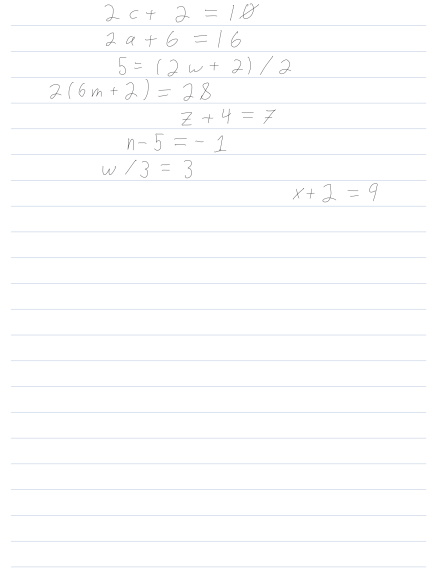 2c + 2 = 10
2a + 6 = 16
5 = (2w + 2) / 2
2(6m + 2) = 28
z + 4 = 7
n - 5 = - 1
w / 3 = 3
x + 2 = 9